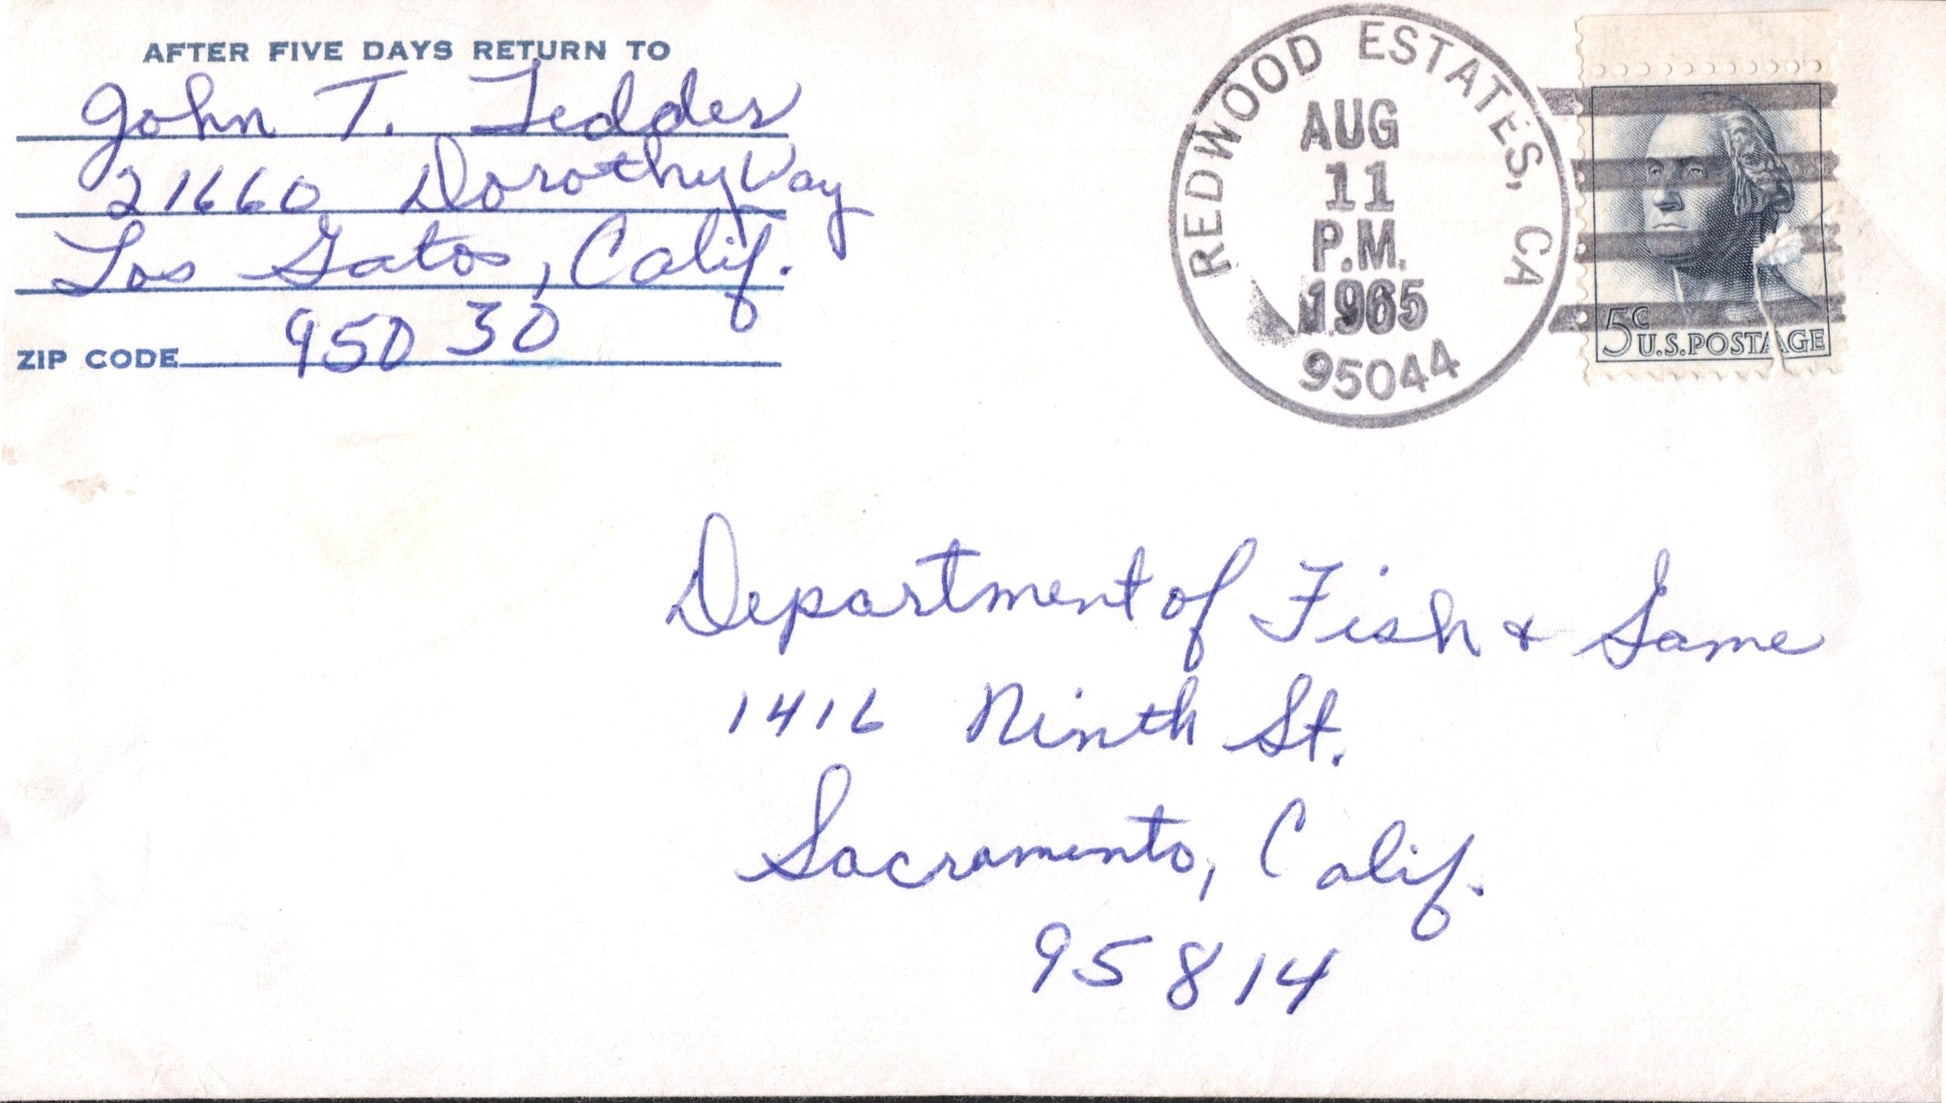 AFTER FIVE DAYS RETURN TO
John T. Tedder
21660 Dorothy Way
Los Gatos, Calif.
ZIP CODE 95030
REDWOOD ESTATES, CA
AUG
11
P.M.
1965
95044
5c
U.S. POSTAGE
Department of Fish & Game
1416 Ninth St.
Sacramento, Calif.
95814